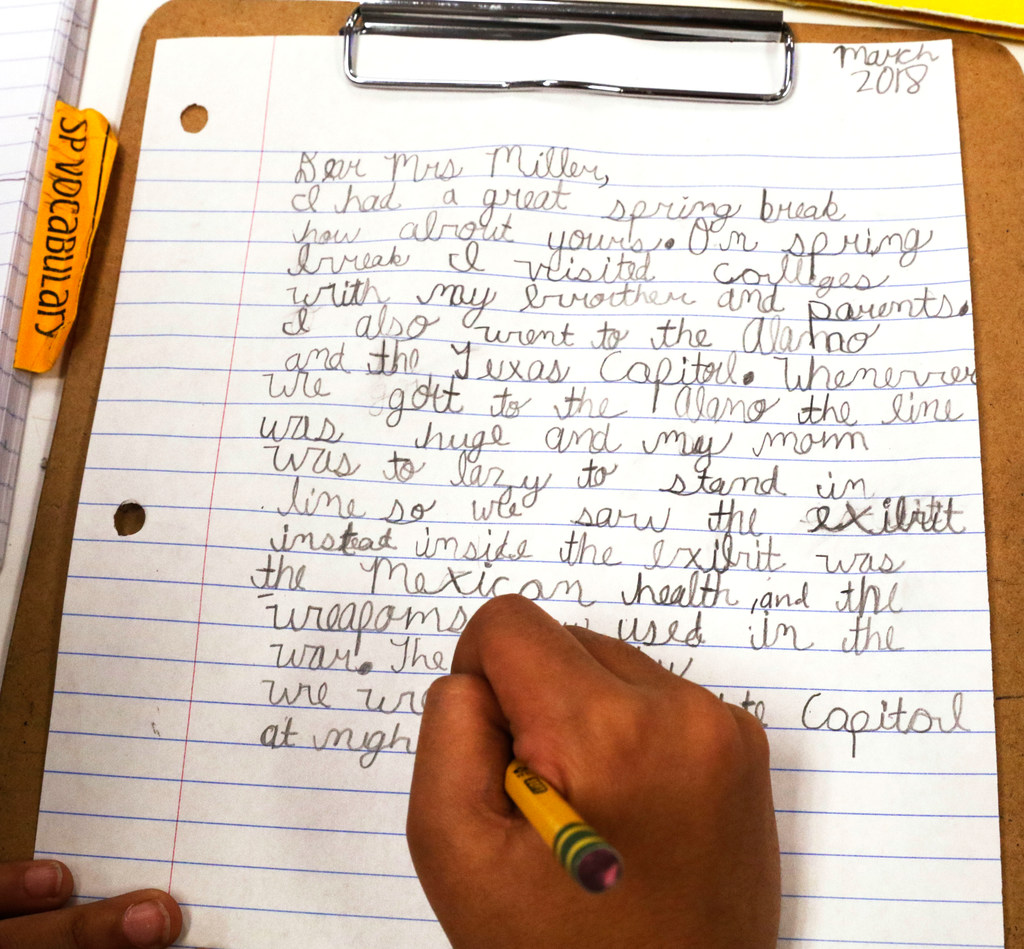 March
2018
SP VOCABULARY
Dear Mrs Miller,
I had a great spring break
how about yours. On spring
break I visited colleges
with my brother and parents.
I also went to the Alamo
and the Texas Capitol. Whenever
we gott to the Alamo the line
was huge and my mom
was to lazy to stand in
line so we saw the exibit
instead inside the exibit was
the Mexican health, and the
weapoms used in the
war. The
we we Capitol
at nigh